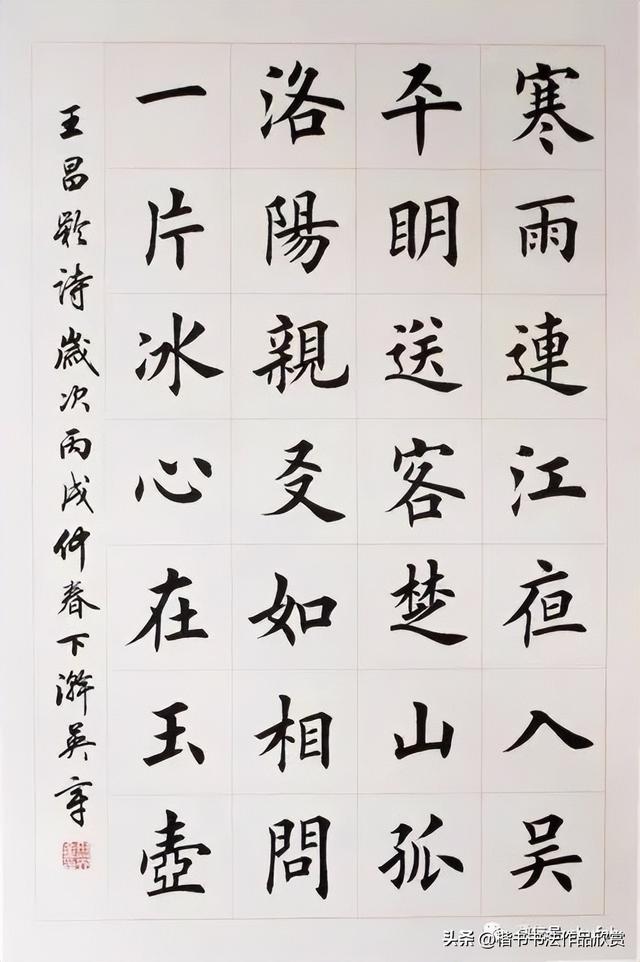 寒雨連江夜入吴
平明送客楚山孤
洛陽親友如相問
一片冰心在玉壺
王昌齡詩歲次丙戌仲春下澣英
头条 @楷书书法作品欣赏